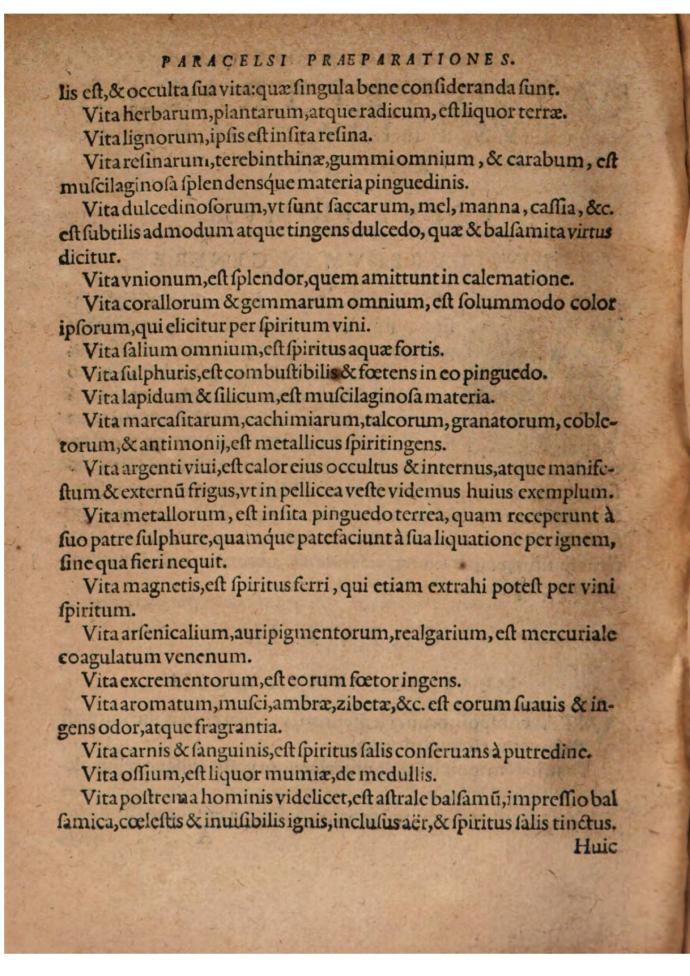 PARACELSI PRÆPARATIONES.
lis est,& occulta sua vita:quæ singula bene consideranda sunt.
Vita herbarum,plantarum,atque radicum, est liquor terræ.
Vita lignorum,ipsis est insita resina.
Vita resinarum,terebinthinæ,gummi omnium, & carabum, est
muscilaginosa splendensq́ue materia pinguedinis.
Vita dulcedinosorum,vt sunt saccarum, mel, manna, cassia, &c.
est subtilis admodum atque tingens dulcedo, quæ & balsamita virtus
dicitur.
Vita vnionum,est splendor,quem amittunt in calematione.
Vita corallorum & gemmarum omnium, est solummodo color
ipsorum,qui elicitur per spiritum vini.
Vita salium omnium,est spiritus aquæ fortis.
Vita sulphuris,est combustibilis & fœtens in eo pinguedo.
Vita lapidum & silicum,est muscilaginosa materia.
Vita marcasitarum,cachimiarum,talcorum,granatorum, coble-
torum,& antimonij,est metallicus spiritingens.
Vita argenti viui,est calor eius occultus & internus,atque manife-
stum & externū frigus,vt in pellicea veste videmus huius exemplum.
Vita metallorum, est insita pinguedo terrea, quam receperunt à
suo patre sulphure,quamq́ue patefaciunt à sua liquatione per ignem,
sine qua fieri nequit.
Vita magnetis,est spiritus ferri, qui etiam extrahi potest per vini
spiritum.
Vita arsenicalium,auripigmentorum,realgarium, est mercuriale
coagulatum venenum.
Vita excrementorum,est eorum fœtor ingens.
Vita aromatum,musci,ambræ,zibetæ,&c. est eorum suauis & in-
gens odor,atque fragrantia.
Vita carnis & sanguinis,est spiritus salis conseruans à putredine.
Vita ossium,est liquor mumiæ,de medullis.
Vita postrema hominis videlicet,est astrale balsamū,impressio bal
samica,cœlestis & inuisibilis ignis,inclusus aër,& spiritus salis tinctus.
Huic